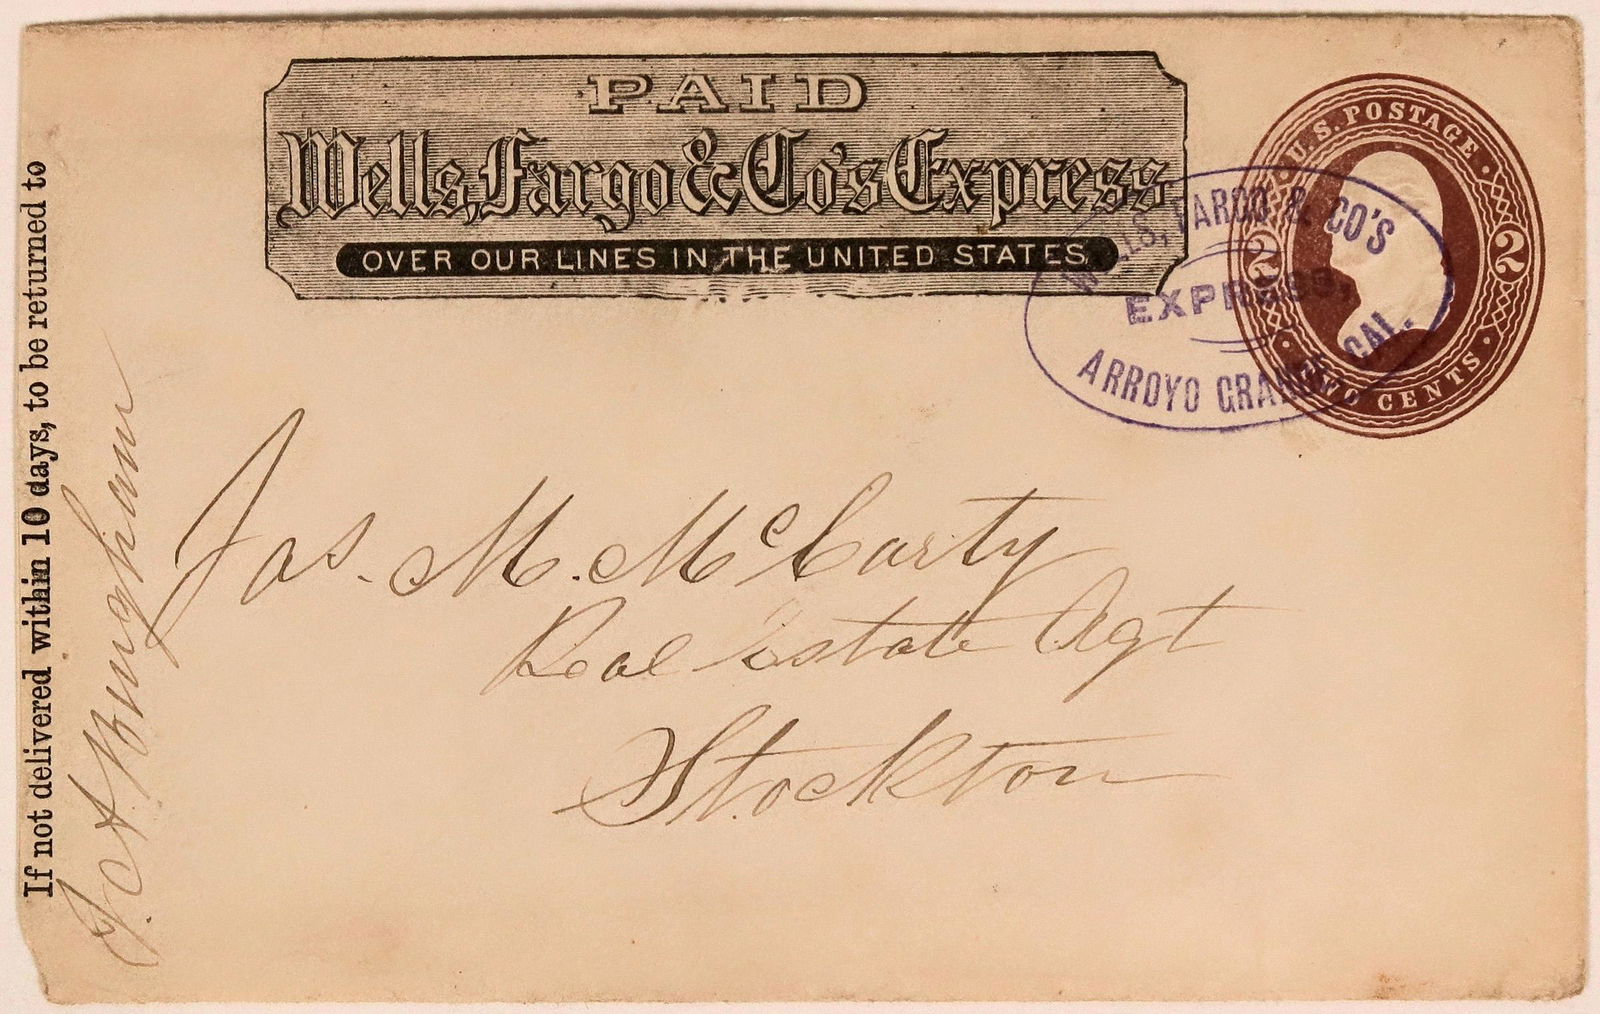 PAID
Wells, Fargo & Co's Express
OVER OUR LINES IN THE UNITED STATES
U.S. POSTAGE
2 2
TWO CENTS
WELLS, FARGO & CO'S
EXPRESS,
ARROYO GRANDE CAL.
If not delivered within 10 days, to be returned to
Jas. M. McCarty
Real Estate Agt
Stockton